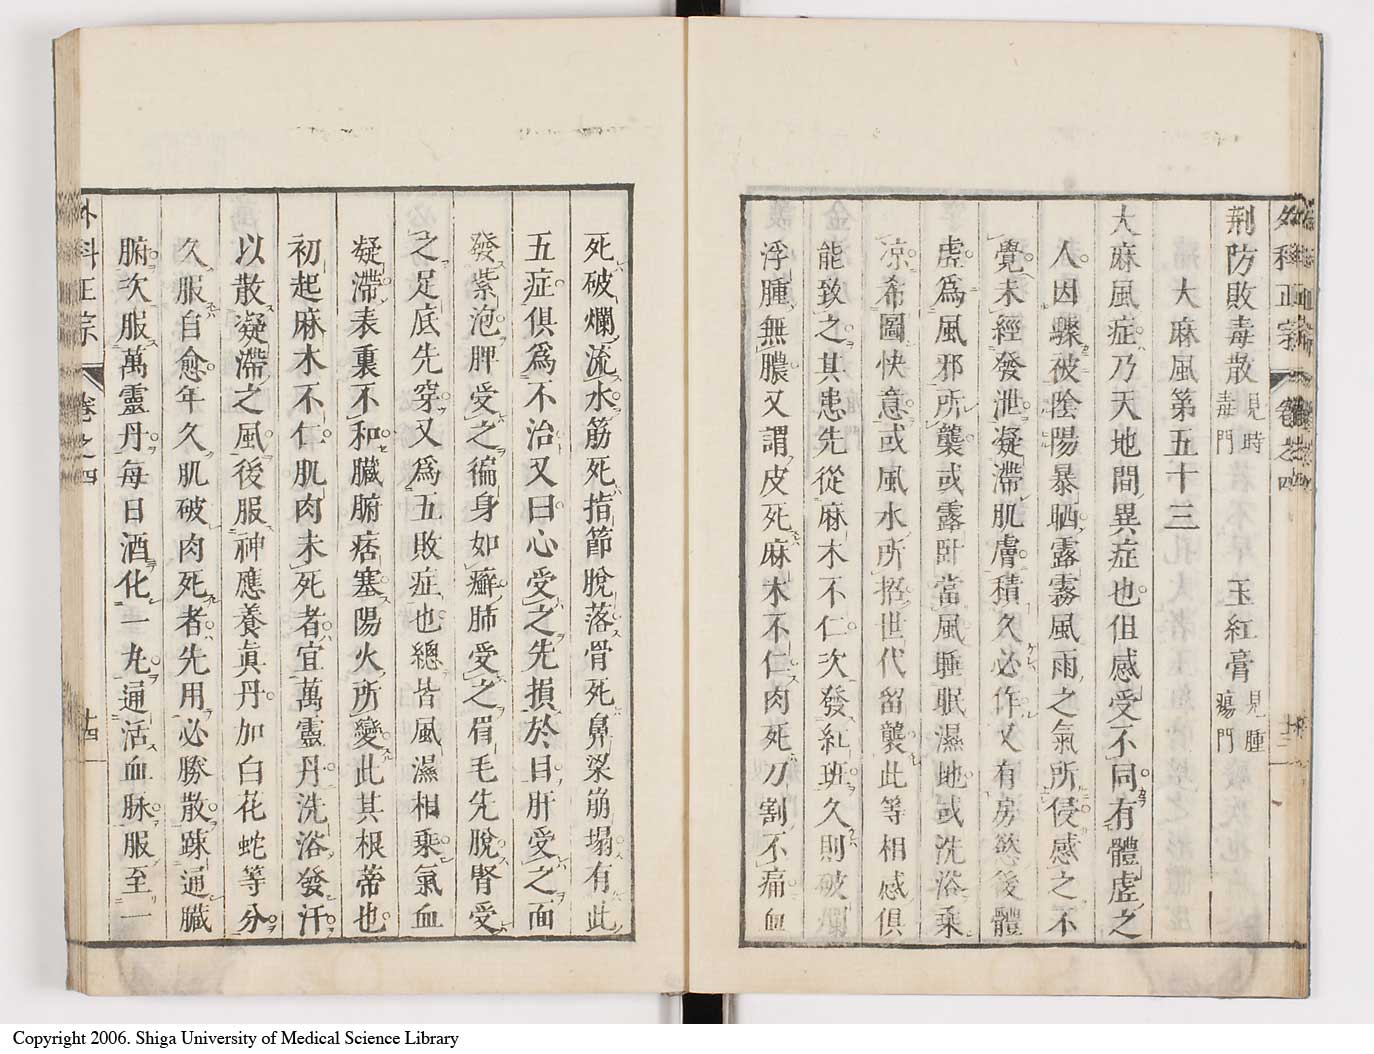 外科正宗 卷之四 十三
荆防敗毒散 見時毒門 玉紅膏 見腫瘍門
大麻風第五十三
大麻風症乃天地間異症也但感受不同有體虛之
人因驟被陰陽暴晒露霧風雨之氣所侵感之不
覺未經發泄凝滯肌膚積久必作又有房慾後體
虛爲風邪所襲或露卧當風睡眠濕地或洗浴乘
凉希圖快意或風水所招世代留襲此等相感俱
能致之其患先從麻木不仁次發紅班久則破爛
浮腫無膿又謂皮死麻木不仁肉死刀割不痛血
死破爛流水筋死指節脫落骨死鼻梁崩塌有此
五症俱爲不治又曰心受之先損於目肝受之面
發紫泡脾受之徧身如癬肺受之眉毛先脫腎受
之足底先穿又爲五敗症也總皆風濕相乘氣血
凝滯表裏不和臟腑痞塞陽火所變此其根蒂也
初起麻木不仁肌肉未死者宜萬靈丹洗浴發汗
以散凝滯之風後服神應養眞丹加白花蛇等分
久服自愈年久肌破肉死者先用必勝散踈通臟
腑次服萬靈丹每日酒化一丸通活血脉服至一
外科正宗 卷之四 十四
Copyright 2006. Shiga University of Medical Science Library